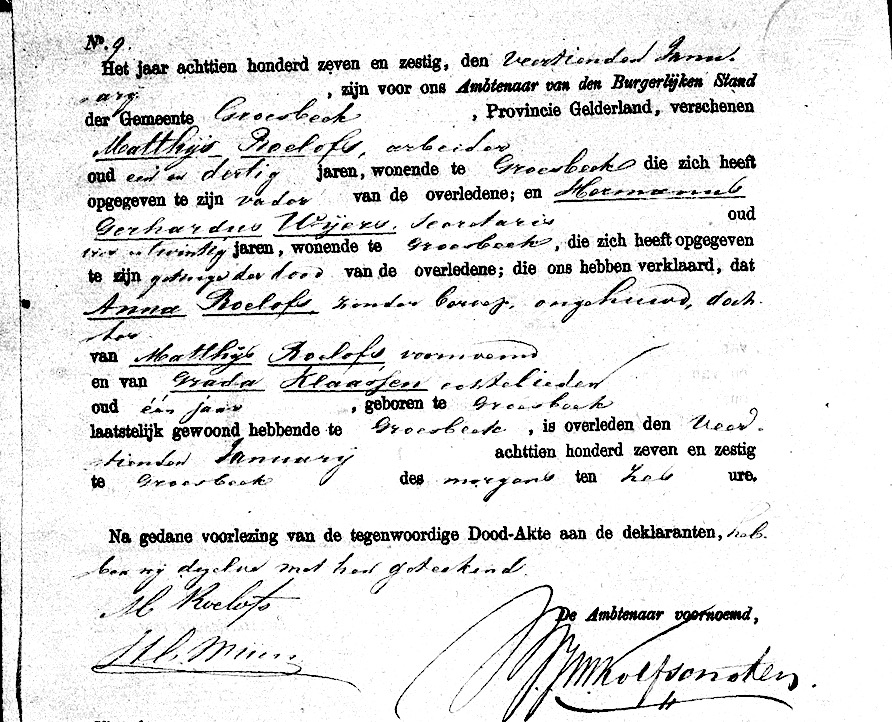 No. 9.
Het jaar achttien honderd zeven en zestig, den Veertienden Janu-
ary , zijn voor ons Ambtenaar van den Burgerlijken Stand
der Gemeente Groesbeek , Provincie Gelderland, verschenen
Matthijs Roelofs, arbeider
oud een en dertig jaren, wonende te Groesbeek die zich heeft
opgegeven te zijn vader van de overledene; en Hermanus
Gerhardus Wijers, Secretaris oud
vier en twintig jaren, wonende te Groesbeek, die zich heeft opgegeven
te zijn getuige der dood van de overledene; die ons hebben verklaard, dat
Anna Roelofs, zonder beroep, ongehuwd, doch-
ter
van Matthijs Roelofs voornoemd
en van Grada Klaassen echtelieden
oud één jaar , geboren te Groesbeek
laatstelijk gewoond hebbende te Groesbeek , is overleden den Veer-
tienden January achttien honderd zeven en zestig
te Groesbeek des morgens ten zes ure.
Na gedane voorlezing van de tegenwoordige Dood-Akte aan de deklaranten, heb-
ben wij dezelve met hen geteekend.
M Roelofs
De Ambtenaar voornoemd,